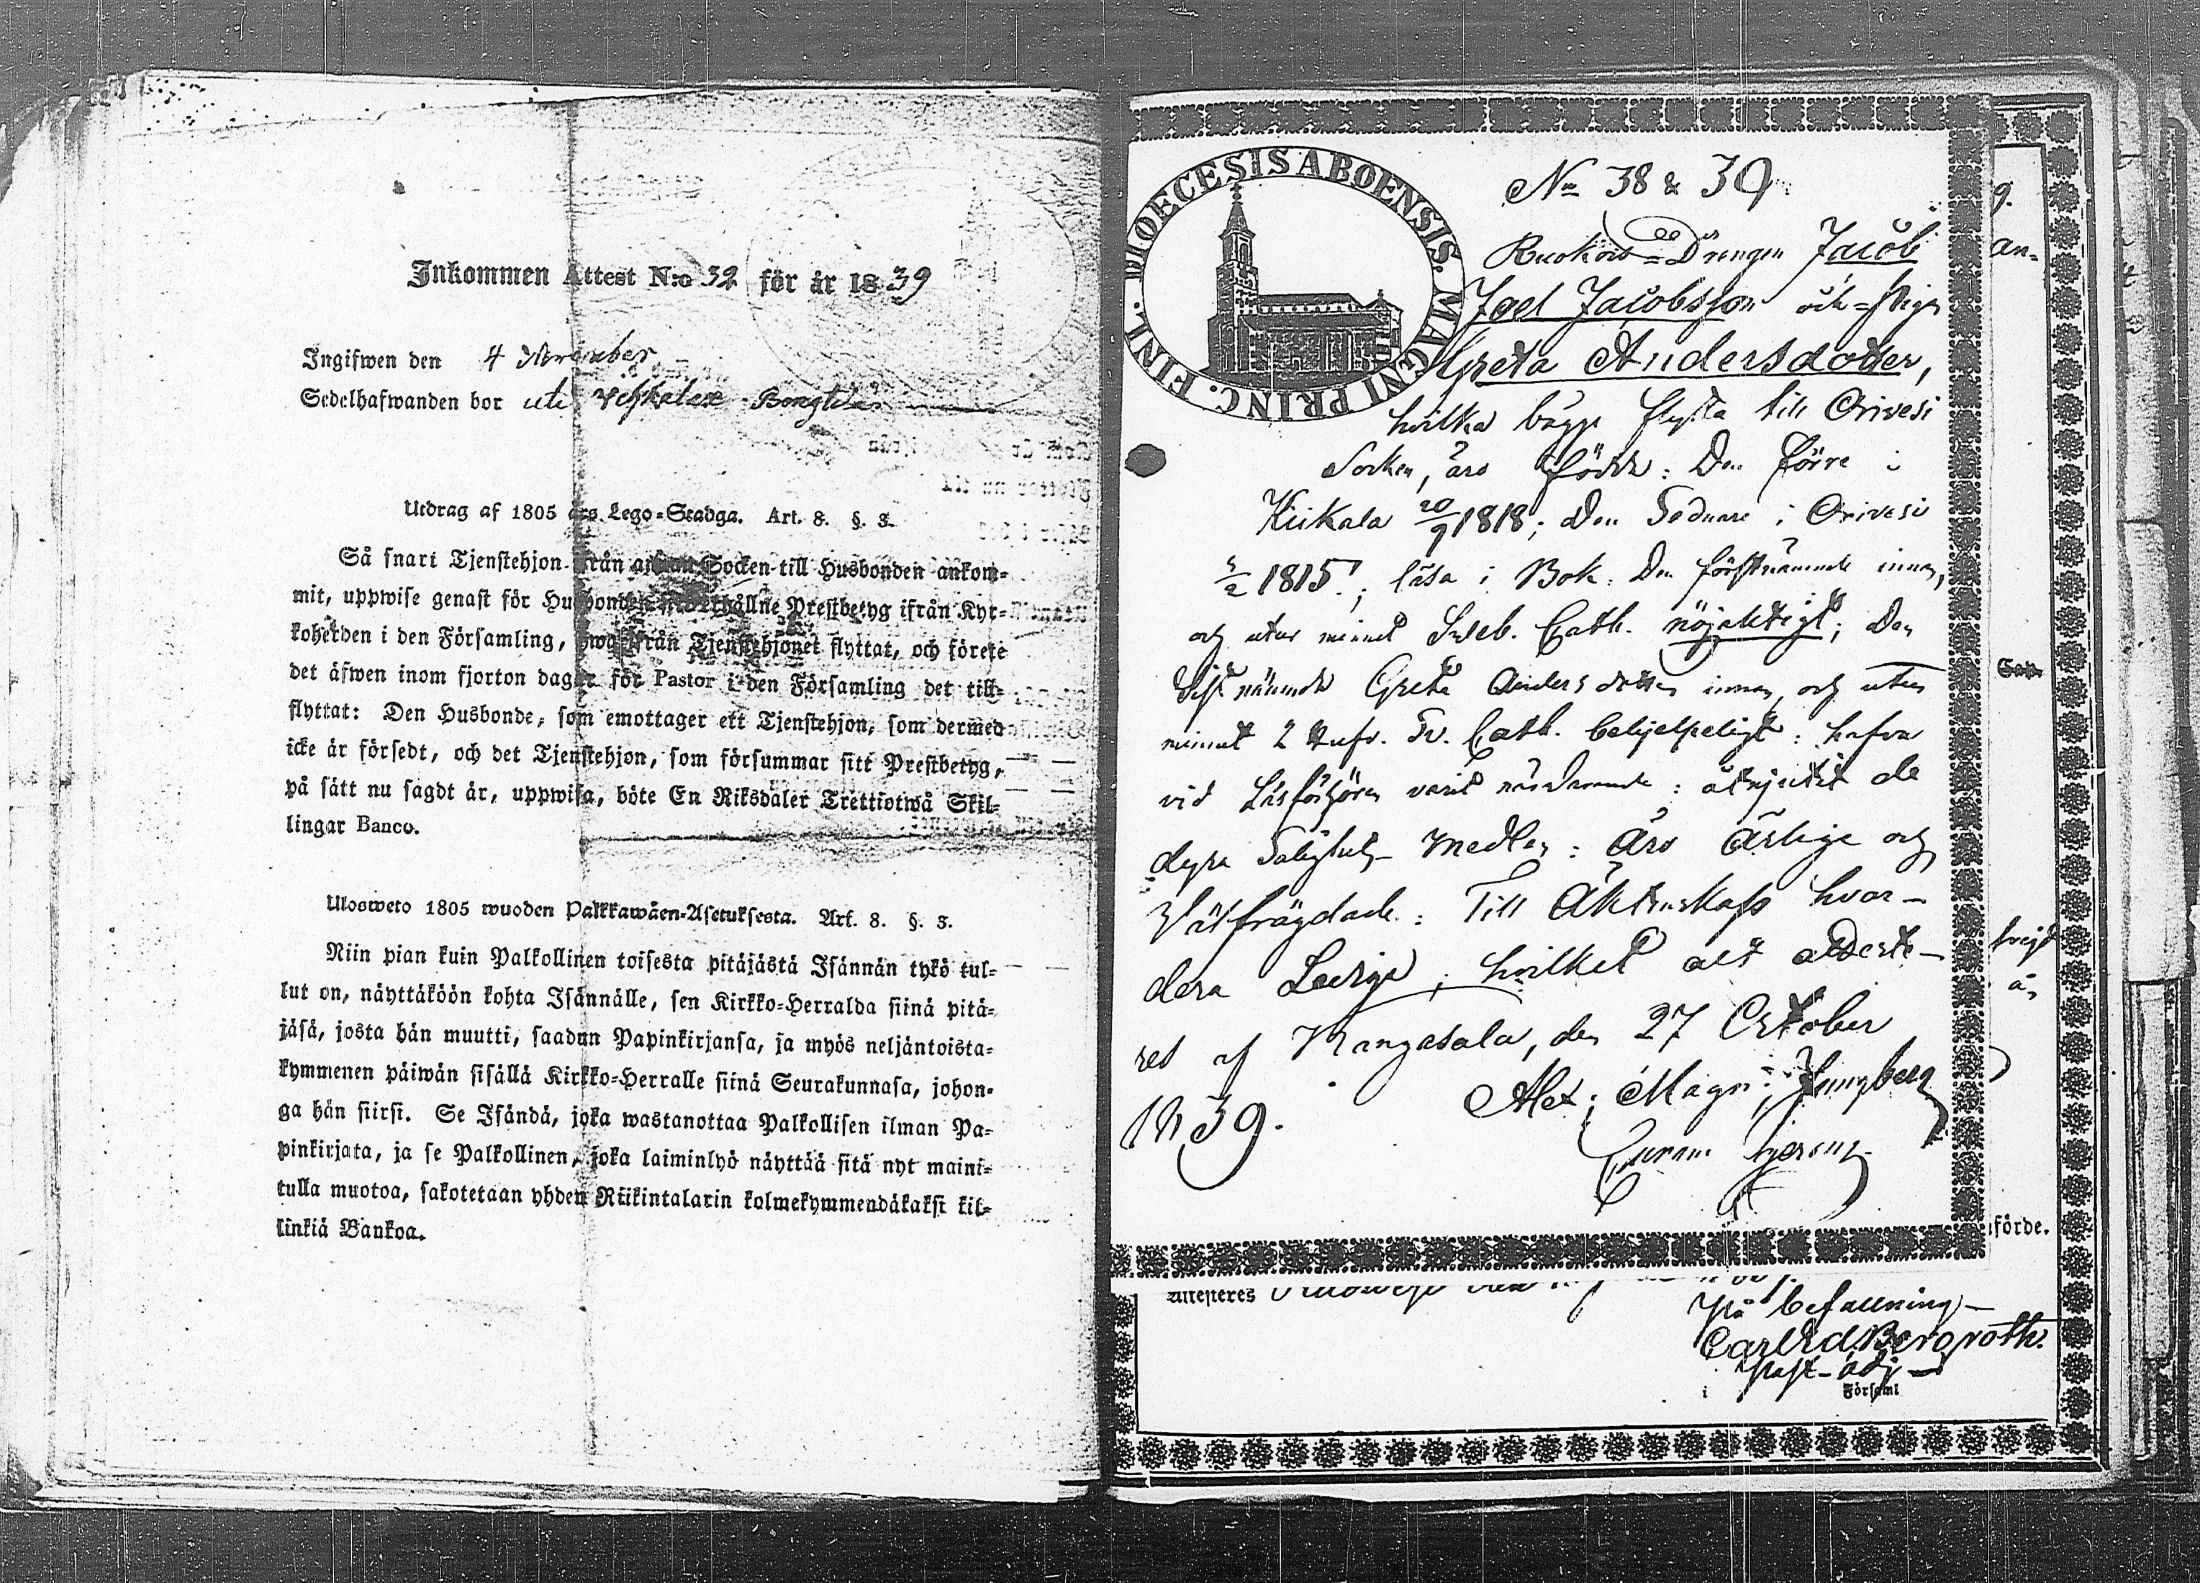 Inkommen Attest N:o 32 för år 1839
Ingifwen den 4 November
Sedelhafwanden bor uti
Utdrag af 1805 års Lego-Stadga. Art. 8. §. 3.
Så snart Tjenstehjon från annan Socken till Husbonden ankom-
mit, uppwise genast för Husbonden Prestbetyg ifrån Kyr-
koherden i den Församling, hwarifrån Tjenstehjonet flyttat, och förete
det äfwen inom fjorton dagar för Pastor i den Församling det till-
flyttat: Den Husbonde, som emottager ett Tjenstehjon, som dermed
icke är försedt, och det Tjenstehjon, som försummar sitt Prestbetyg,
på sätt nu sagdt är, uppwisa, böte En Riksdaler Trettiotwå Skil-
lingar Banco.
Ulosweto 1805 wuoden Palkkawäen-Asetuksesta. Art. 8. §. 3.
Niin pian kuin Palkollinen toisesta pitäjästä Isännän tykö tul-
lut on, näyttäköön kohta Isännälle, sen Kirkko-Herralda siinä pitä-
jäsä, josta hän muutti, saadun Papinkirjansa, ja myös neljäntoista-
kymmenen päiwän sisällä Kirkko-Herralle siinä Seurakunnasa, johon-
ga hän siirsi. Se Isändä, joka wastanottaa Palkollisen ilman Pa-
pinkirjata, ja se Palkollinen, joka laiminlyö näyttää sitä nyt maini-
tulla muotoa, sakotetaan yhden Riikintalarin kolmekymmendäkaksi kil-
linkiä Bankoa.
FINL. DIOECESIS ABOENSIS. MAGNI PRINC.
No 38 & 39
Drengen Jacob
Joel Jacobsson och Pigan
Greta Andersdotter,
hvilka bägge flytta till Orivesi
Socken, äro födde: Den förre i
Kiikala 20/9 1818; Den Sednare i Orivesi
5/2 1815; läsa i Bok: Den förstnämnde innan,
och utur minnet Sveb. Cath. nöjaktigt; Den
Sistnämnde Greta Andersdotter innan, och utur
minnet 2 Hufv. St. Cath. behjelpeligt: hafva
vid Läsförhören varit närvarande: åtnjutit de
dyra Salighets Medlen: Äro Ärlige och
Välfrägdade: Till Äktenskap hvar-
dera Lediga; hvilket alt atteste-
res af Kangasala, den 27 October
1839. Alex: Magn: Ljungberg
g.
an-
Sap
förde.
Attesteres
På befallning
Carl Ed. Bergroth.
Past. adj
i Församl